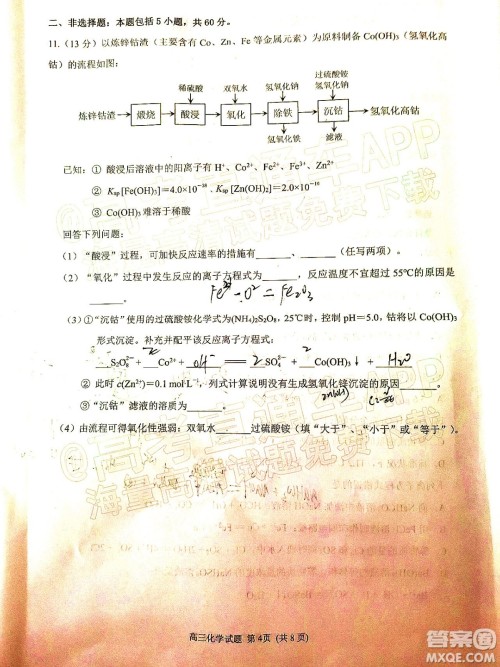 二、非选择题：本题包括5小题，共60分。
11.（13分）以炼锌钴渣（主要含有Co、Zn、Fe等金属元素）为原料制备Co(OH)₃（氢氧化高
钴）的流程如图：
稀硫酸 双氧水 氢氧化钠 过硫酸铵 氢氧化钠
炼锌钴渣 煅烧 酸浸 氧化 除铁 沉钴 氢氧化高钴
氢氧化铁 滤液
已知：① 酸浸后溶液中的阳离子有 H⁺、Co²⁺、Fe²⁺、Fe³⁺、Zn²⁺
② Ksp[Fe(OH)₃]=4.0×10⁻³⁸ . Ksp[Zn(OH)₂]=2.0×10⁻¹⁶
③ Co(OH)₃ 难溶于稀酸
回答下列问题：
（1）“酸浸”过程，可加快反应速率的措施有______、______（任写两项）。
（2）“氧化”过程中发生反应的离子方程式为______，反应温度不宜超过 55℃的原因是
______。
（3）①“沉钴”使用的过硫酸铵化学式为(NH₄)₂S₂O₈，25℃时，控制 pH=5.0，钴将以 Co(OH)₃
形式沉淀。补充并配平该反应离子方程式：
__S₂O₈²⁻ + 2 Co²⁺ + OH⁻ = 2 SO₄²⁻ + __Co(OH)₃↓ + H₂O
② 此时 c(Zn²⁺)=0.1 mol·L⁻¹，列式计算说明没有生成氢氧化锌沉淀的原因______。
③“沉钴”滤液的溶质为______。
（4）由流程可得氧化性强弱：双氧水______过硫酸铵（填“大于”、“小于”或“等于”）。
高三化学试题 第4页（共8页）
答案圈
MXQE.COM